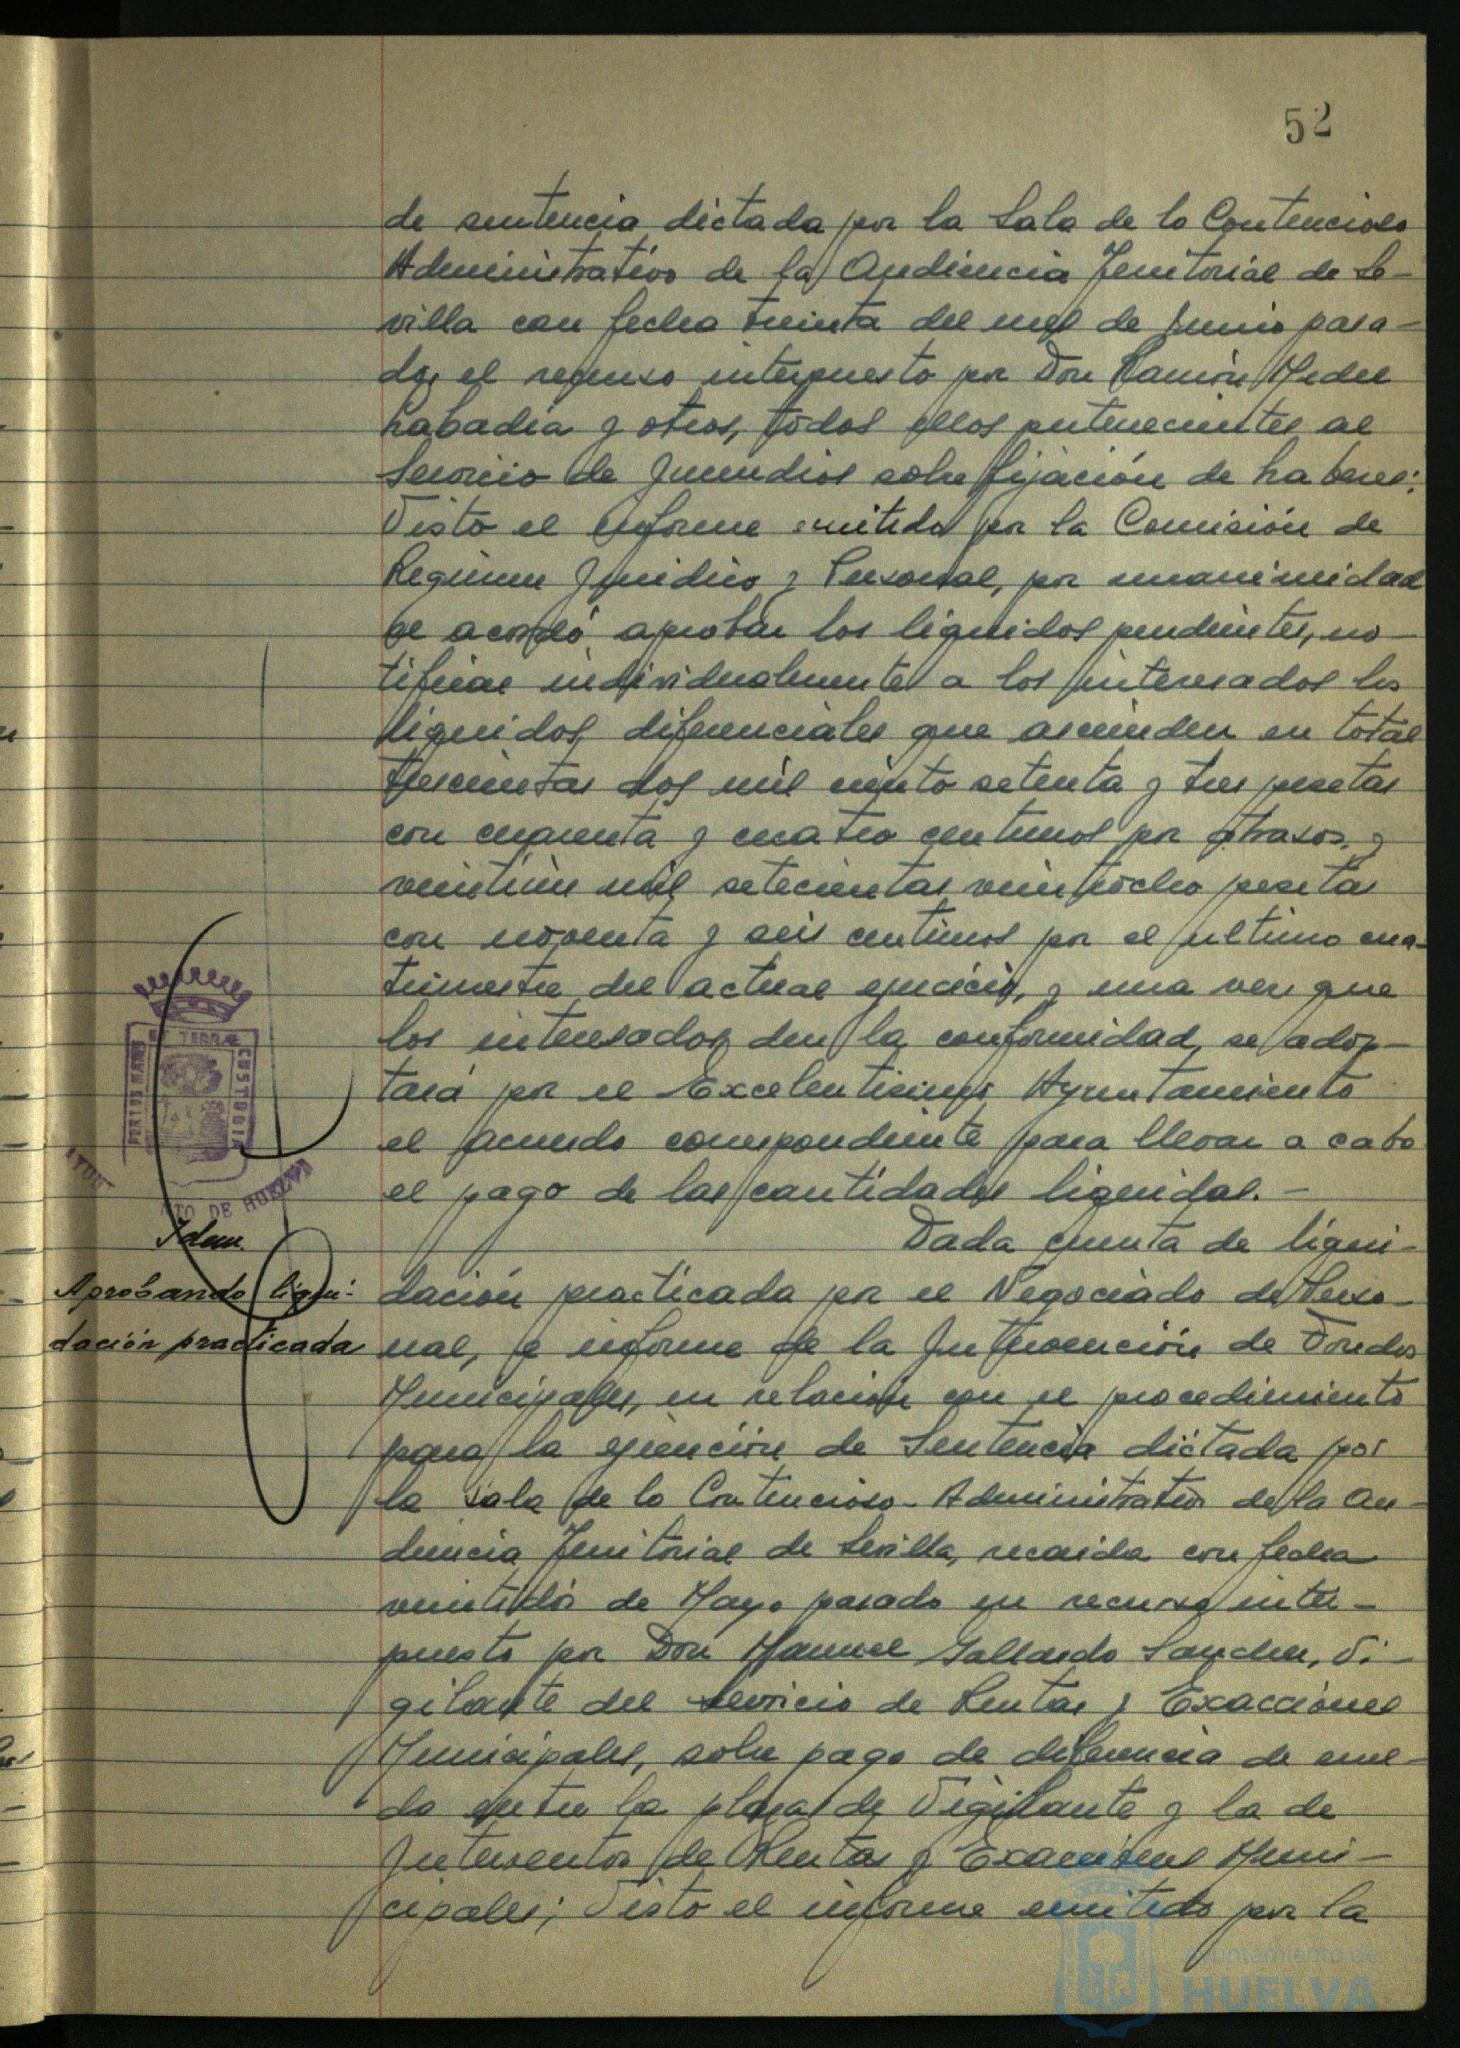 52
de sentencia dictada por la Sala de lo Contencioso
Administrativo de la Audiencia Territorial de Se-
villa con fecha treinta del mes de Junio pasa-
do, el recurso interpuesto por Don Ramón Medel
Labadía y otros, todos ellos pertenecientes al
Servicio de Incendios sobre fijación de haberes;
Visto el informe emitido por la Comisión de
Regimen Juridico y Personal, por unanimidad
se acordó aprobar los liquidos pendientes, no-
tificar individualmente a los interesados los
liquidos diferenciales que ascienden en total
trescientas dos mil ciento setenta y tres pesetas
con cincuenta y cuatro centimos por atrasos, y
mil setecientas veintiocho pesetas
con noventa y seis centimos por el ultimo cua-
trimestre del actual ejercicio, y una vez que
los interesados den la conformidad, se adop-
tará por el Excelentisimo Ayuntamiento
el acuerdo correspondiente para llevar a cabo
el pago de las cantidades liquidas.-
Idem.
Aprobando liqui-
dación practicada
Dada cuenta de liqui-
dación practicada por el Negociado de Perso-
nal, e informe de la Intervención de Fondos
Municipales, en relación con el procedimiento
para la ejecución de Sentencia dictada por
la Sala de lo Contencioso-Administrativo de la Au-
diencia Territorial de Sevilla, recaida con fecha
veintidós de Mayo pasado en recurso inter-
puesto por Don Manuel Gallardo Sanchez, Vi-
gilante del Servicio de Rentas y Exacciones
Municipales, sobre pago de diferencia de suel-
do entre la plaza de Vigilante y la de
Interventor de Rentas y Exacciones Muni-
cipales; Visto el informe emitido por la
PORTUS MARIS ET TERRAE CUSTODIA
AYUNTO DE HUELVA
Ayuntamiento de
HUELVA